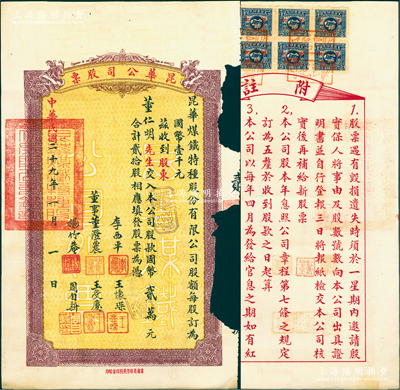 昆華公司股票
昆華煤鐵特種股份有限公司股額每股訂為
國幣壹千元
茲收到股東
董仁明先生交入本公司股款國幣貳萬元
合計貳拾股相應填發股票為憑
李西平
董事董澄農
王懷琛
楊竹菴
王受慶
二十九年一月一日
附註
1.股票遇有毀損遺失時須於一星期內邀請股
實保人將事由及股數號數向本公司出具證
明書並自行登報三日將報紙檢交本公司核
實後再補給新股票
2.本公司股本年息照公司章程第七條之規定
訂為五釐於收到股款之日起算
3.本公司以每年四月為發給官息之期如有紅